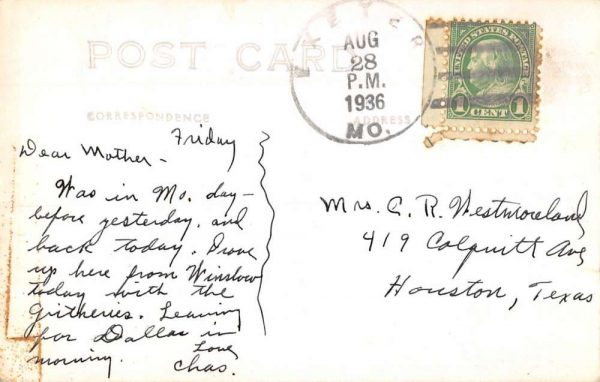 POST CARD
AUG
28
P.M.
1936
MO.
UNITED STATES POSTAGE
1 CENT 1
CORRESPONDENCE
ADDRESS
Friday
Dear Mother -
Was in Mo. day-
before yesterday, and
back today. Drove
up here from Winslow
today with the
Githeries. Leaving
for Dallas in
morning.
Love,
Chas.
Mrs. C. R. Westmoreland
419 Colquitt Ave
Houston, Texas